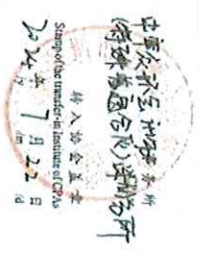 中审众环会计师事务所
(特殊普通合伙)分所
转入协会盖章
Stamp of the transfer-in Institute of CPAs
2024年 7月22日
/y /m /d